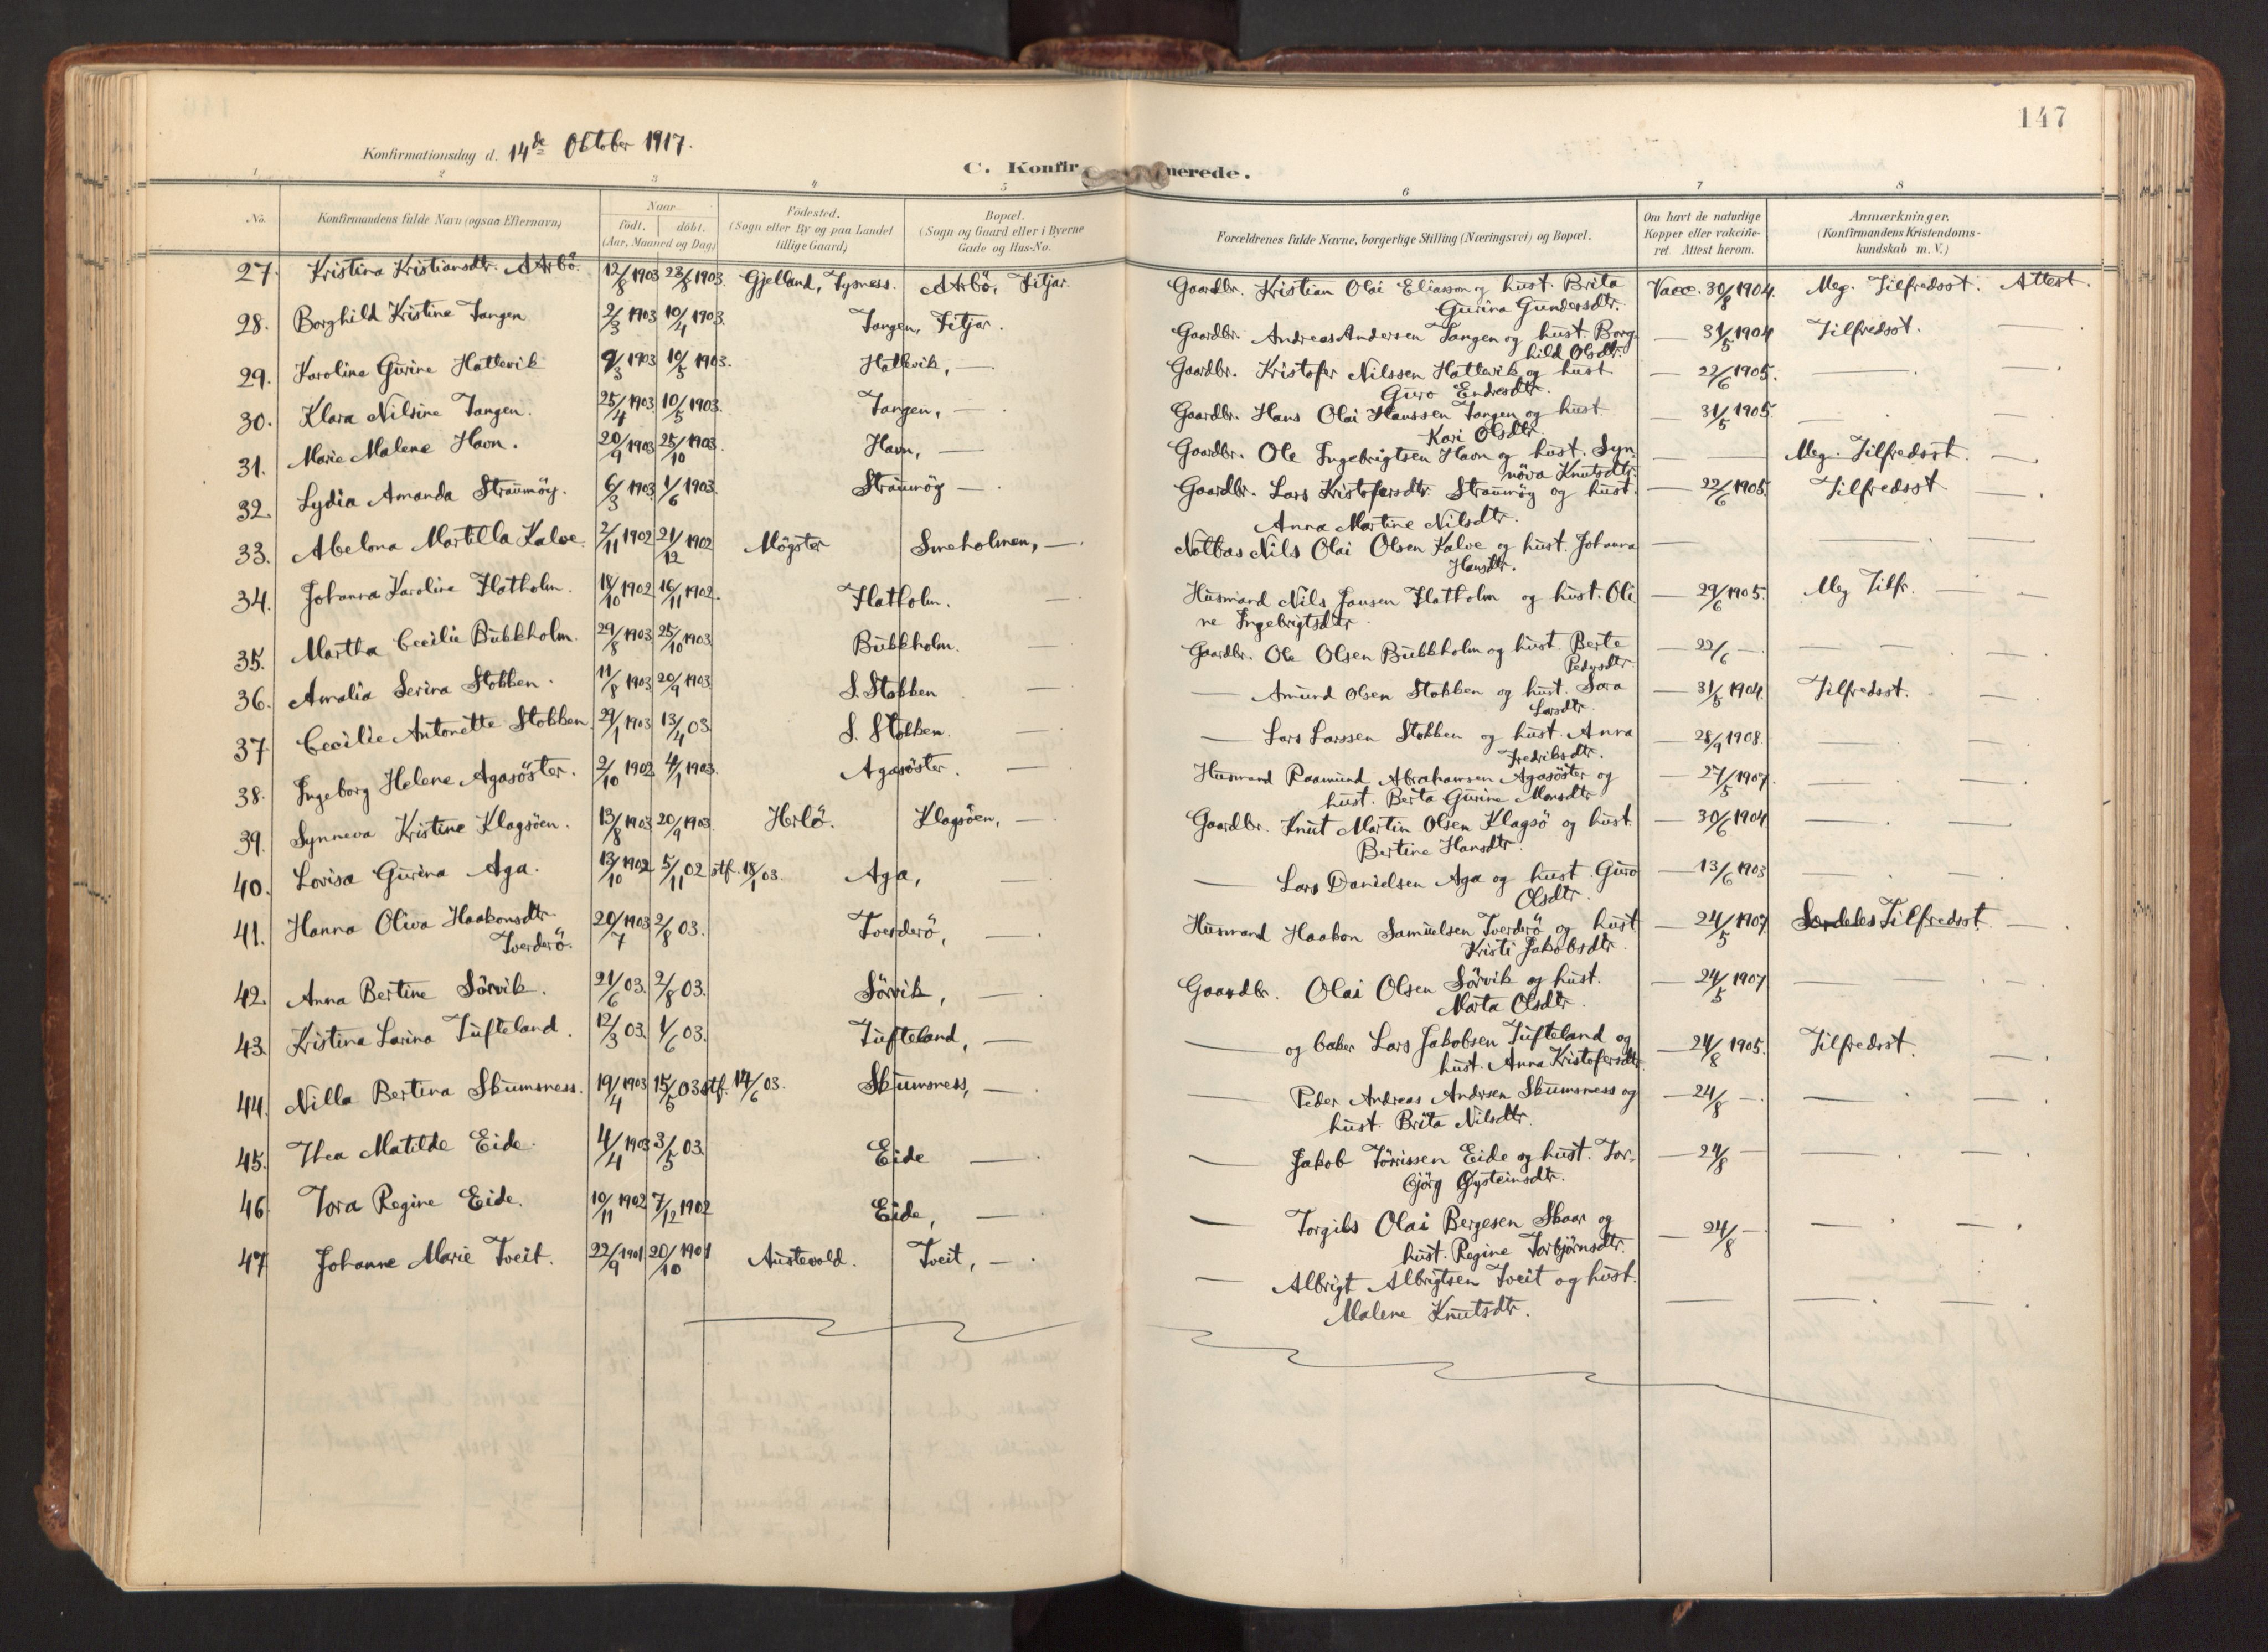 147
Konfirmationsdag d. 14de Oktober 1917.
C. Konfir merede.
1 2 3 4 5 6 7 8
No. Konfirmandens fulde Navn (ogsaa Efternavn) Naar født, døbt. (Aar, Maaned og Dag) Fødested. (Sogn eller By og paa Landet tillige Gaard) Bopæl. (Sogn og Gaard eller i Byerne Gade og Hus-No. Forældrenes fulde Navne, borgerlige Stilling (Næringsvei) og Bopæl. Om havt de naturlige Kopper eller vakcineret Attest herom. Anmærkninger. (Konfirmandens Kristendomskundskab m. V.)
27. Kristina Kristiansdtr. Aarbö. 12/8 1903 23/8 1903. Gjelland, Tysness. Aarbö, Fitjar. Gaardbr. Kristian Olai Eliasson og hust. Brita Vacc. 30/8 1904. Meg. Tilfredsst. Attest.
Gurina Gundersdtr.
28. Borghild Kristine Tangen 2/3 1903 10/4 1903. Tangen, Fitjar. Gaardbr. Andreas Andersen Tangen og hust. Borg — 31/5 1904 Tilfredsst. —
hild Olsdtr.
29. Karoline Gurine Hattevik 9/3 1903 10/5 1903. Hattevik, — Gaardbr. Kristofer Nilssen Hattevik og hust — 22/6 1905. — —
Guro Endresdtr.
30. Klara Nilsine Tangen. 25/4 1903 10/5 1903. Tangen, — Gaardbr. Hans Olai Hanssen Tangen og hust — 31/5 1905. — —
Kari Olsdtr.
31. Marie Malene Havn. 20/9 1903 25/10 1903. Havn, — Gaardbr. Ole Ingebrigtsen Havn og hust. Syn — — Meg. Tilfredsst. —
növa Knutsdtr.
32. Lydia Amanda Straumöy. 6/3 1903 1/6 1903. Straumöy — Gaardbr. Lars Kristofersdtr. Straumöy og hust. — 22/6 1905. Tilfredsst —
Anna Martine Nilsdtr.
33. Abelona Martilla Kalve. 2/11 1902 21/12 1902 Mögster Smeholmen, — Notbas Nils Olai Olsen Kalve og hust. Johanna — — —
Hansdtr.
34. Johanna Karoline Flatholm. 18/10 1902 16/11 1902. Flatholm. — Husmand Nils Jansen Flatholm og hust. Oli — 29/6 1905. Meg Tilfr. — —
ne Ingebrigtsdtr
35. Martha Cecilie Bukkholm. 29/8 1903 25/10 1903. Bukkholm. — Gaardbr. Ole Olsen Bukkholm og hust. Berte — 22/6 — — — — —
Pedersdtr.
36. Amalia Serina Stokken. 11/8 1903 20/9 1903 S. Stokken — — Amund Olsen Stokken og hust. Sara — 31/5 1904. Tilfredsst. —
Larsdtr.
37 Cecilie Antonette Stokken 29/1 1903 13/4 03. S. Stokken. — — Lars Larssen Stokken og hust. Anna — 28/9 1908. — — —
Fredriksdtr.
38. Ingeborg Helene Agasöster. 2/10 1902 4/1 1903. Agasöster. — Husmand Raamund Abrahamsen Agasöster og — 27/5 1907. — — —
hust. Berta Gurine Monsdtr
39. Synneva Kristine Klagsöen. 13/8 1903 20/9 1903. Herlö. Klagsöen, — Gaardbr. Knut Martin Olsen Klagsö og hust. — 30/6 1904 — — —
Bertine Hansdtr.
40. Lovisa Gurina Aga. 13/10 1902 5/11 02 stf. 18/1 03. Aga, — — Lars Danielsen Aga og hust. Guro — 13/6 1903 — — —
Olsdtr.
41. Hanna Oliva Haakonsdtr. 20/7 1903 2/8 03. Tverderö, — Husmand Haakon Samuelsen Tverderö og hust — 24/5 1907 Særdeles Tilfredsst. —
Tverderö. Kristi Jakobsdtr.
42. Anna Bertine Sörvik. 21/6 03. 2/8 03. Sörvik, — Gaardbr. Olai Olsen Sörvik og hust. — 24/5 1907 — — —
Marta Olsdtr.
43. Kristina Larina Tufteland. 12/3 03. 1/6 03. Tufteland, — — og baker Lars Jakobsen Tufteland og — 24/8 1905. Tilfredsst. —
hust. Anna Kristofersdtr.
44. Nilla Bertina Skumsness. 19/4 1903 15/5 03 stf. 14/6 03. Skumsness, — — Peder Andreas Andrsen Skumsness og — 24/8 — — — —
hust. Brita Nilsdtr.
45. Thea Matilde Eide. 4/4 1903 3/5 03. Eide — — Jakob Törrissen Eide og hust. Tor- — 24/8 — — — —
björg Øysteinsdtr.
46. Tora Regine Eide. 10/11 1902 7/12 1902 Eide, — — Torgils Olai Bergesen Skaar og — 24/8 — — — —
hust. Regine Torbjørnsdtr.
47 Johanne Marie Tveit. 22/9 1901 20/10 1901 Austevold. Tveit, — — Albrigt Albrigtsen Tveit og hust. — — —
Malene Knutsdtr.